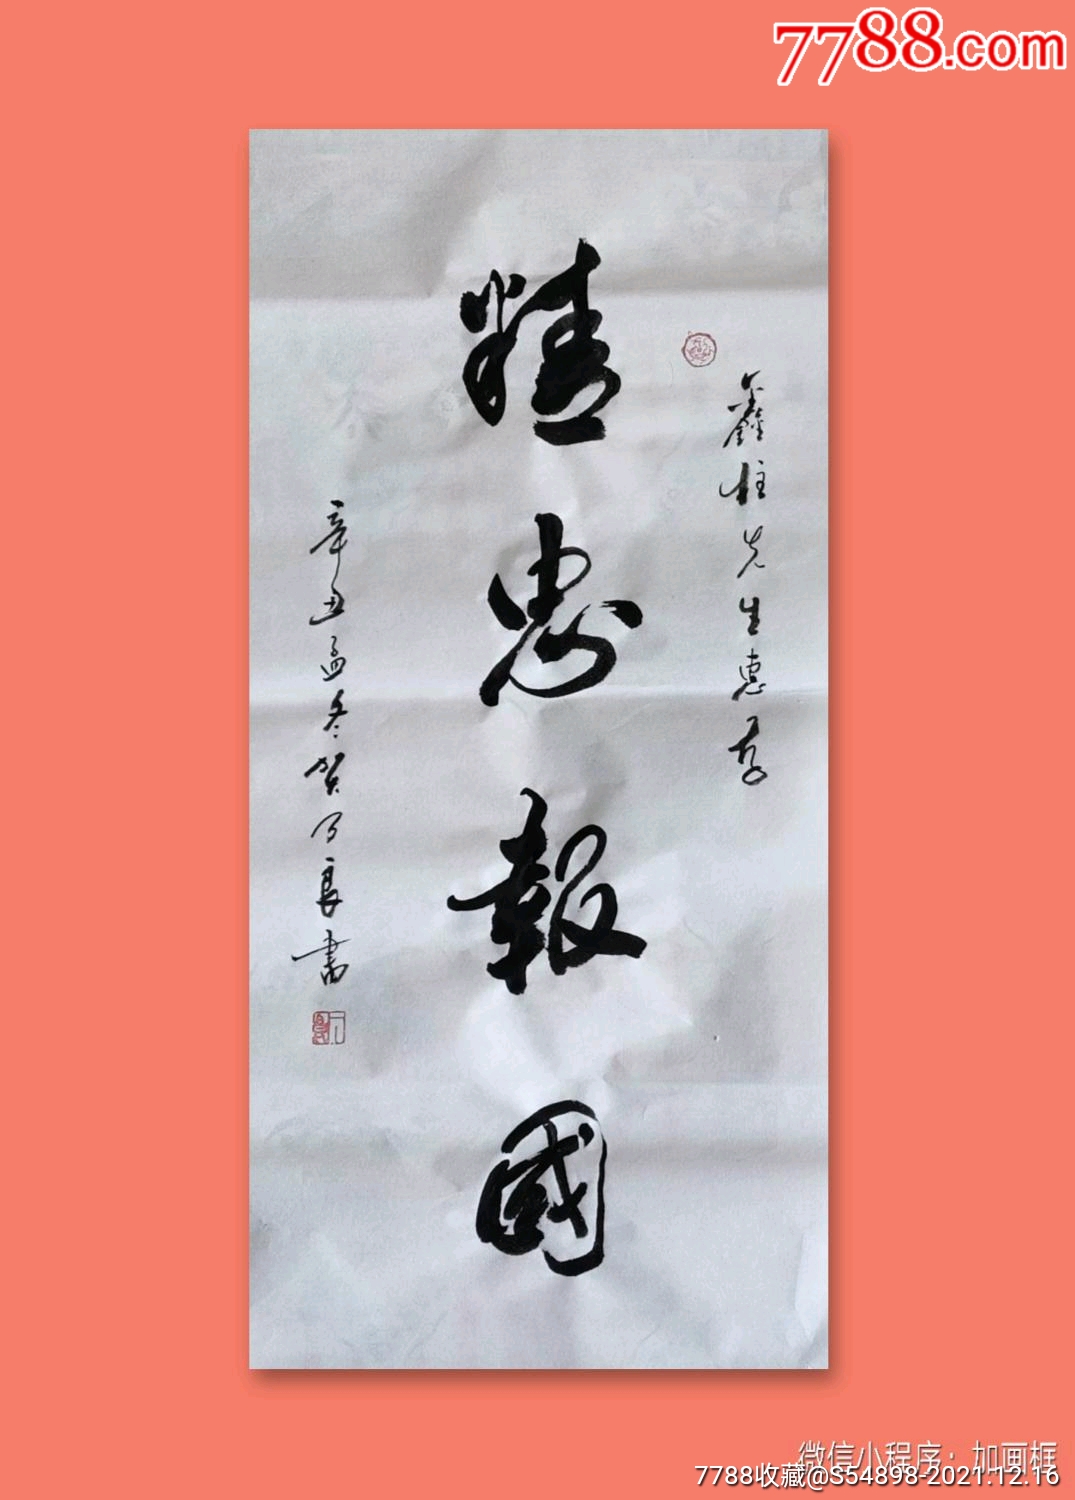 7788.com
鑫柱先生惠存
精忠報國
辛丑孟冬贺乃良書
微信小程序：加画框
7788收藏@S54898-2021.12.16